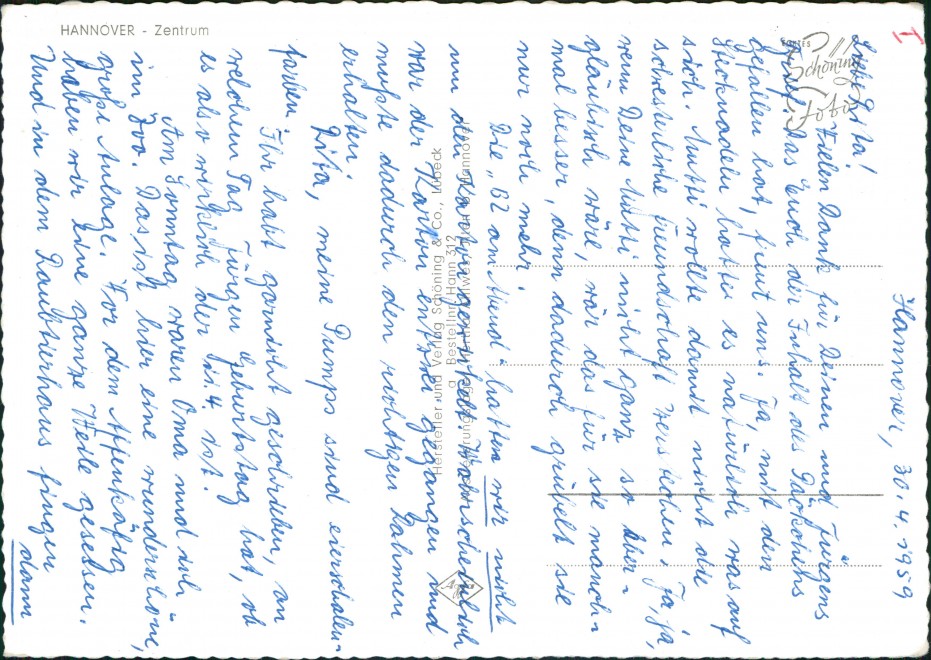 HANNOVER - Zentrum
I
Schöning
Foto
Hannover, 30.4.1959
Liebe Gita!
Vielen Dank für Deinen und Jürgens
Brief. Das Euch der Inhalt des Päckchens
gefallen hat, freut uns. Ja, mit den
Stecknadeln hatte es natürlich was auf
sich. Mutti wollte damit nicht die
schwesterliche Freundschaft zerstechen. Ja, ja,
wenn Deine Mutti nicht ganz so aber-
gläubisch wäre, wär das für sie manch-
mal besser, denn dadurch grübelt sie
nur noch mehr.
Die „BZ am Abend“ hatten wir nicht
um den Karton gewickelt. Wahrscheinlich
war der Karton entzwei gegangen und
mußte dadurch den richtigen Rahmen
erhalten.
Gita, meine Pumps sind eierschalen-
farben.
Ihr habt garnicht geschrieben, an
welchem Tag Jürgen Geburtstag hat, ob
es also wirklich der 11.4. ist.
Am Sonntag waren Oma und ich
im Zoo. Das ist hier eine wunderschöne,
große Anlage. Vor dem Affenkäfig
haben wir eine ganze Weile gesessen.
Und in dem Raubtierhaus fingen
dann
Hersteller und Verlag Schöning & Co., Lübeck
Bestellnr. Hann 312